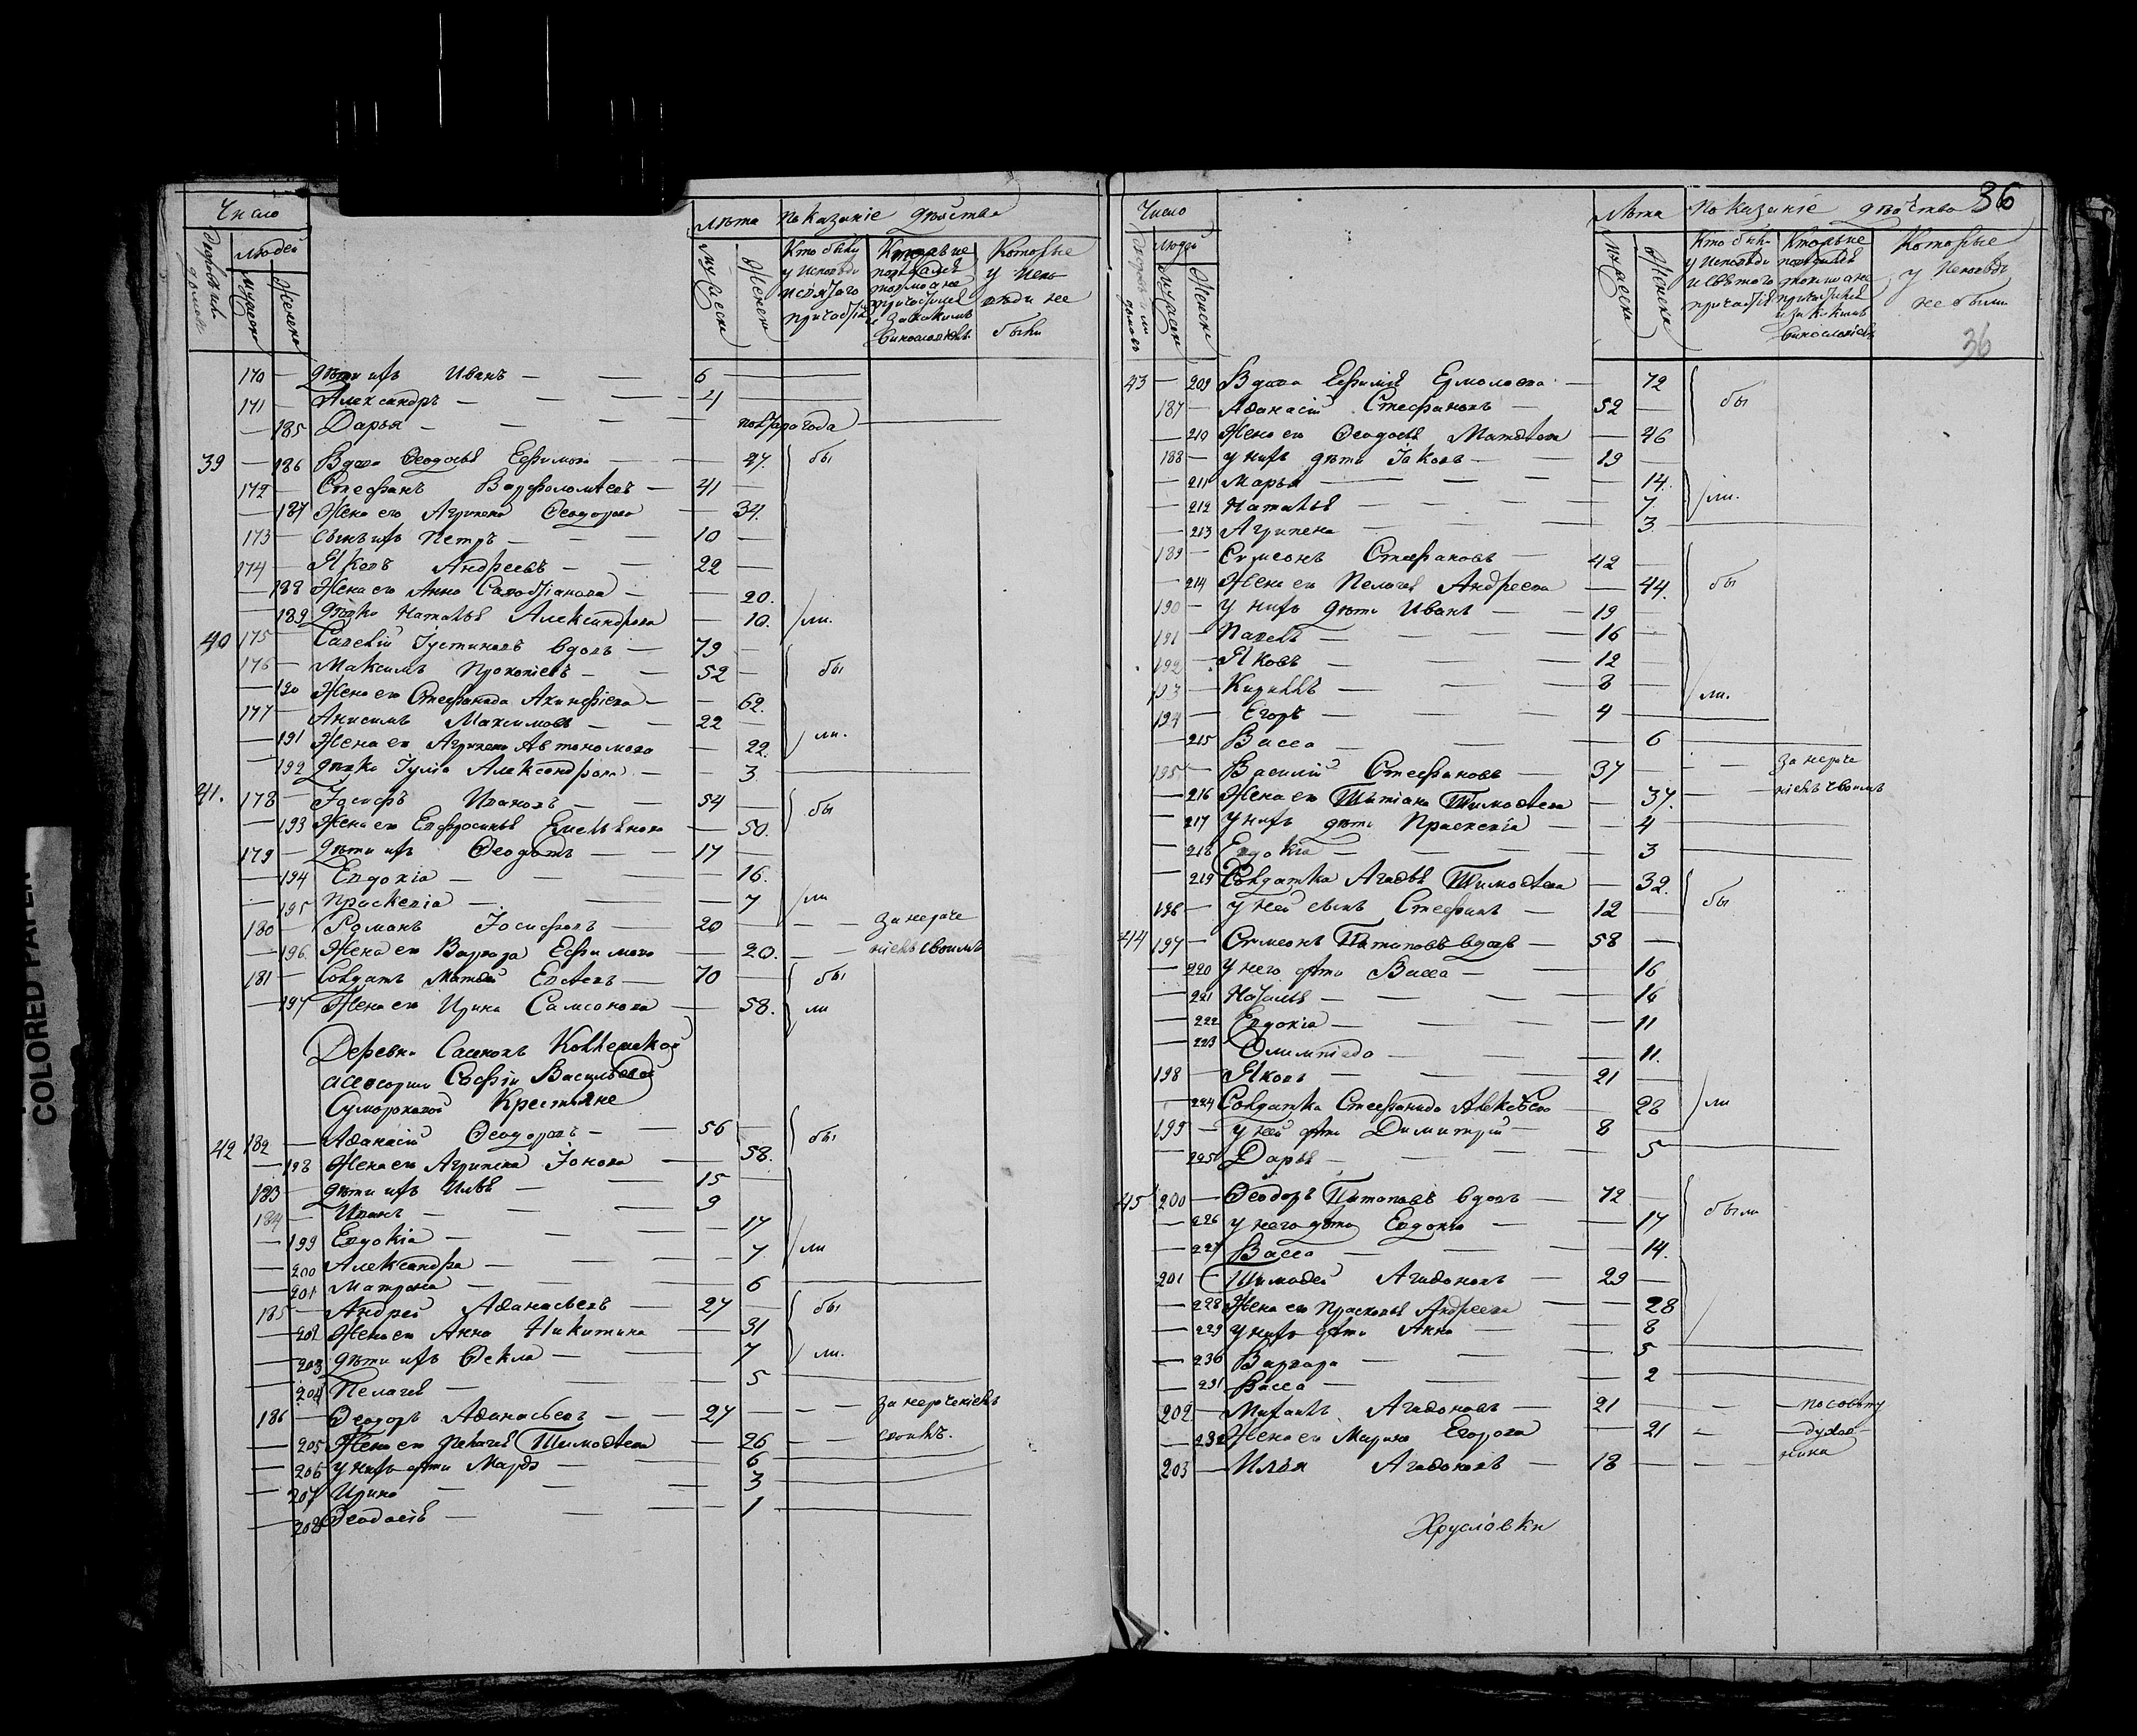 Число
Лѣта Показаніе дѣйства
Дворовъ или домовъ
Людей
Мужеска
Женска
Мужеска
Женска
Кто были у Исповѣди и святаго причастія
Которые
и за какимъ винословіемъ
Которые у Исповѣди не были
170 — Дѣти ихъ Иванъ — — 6
171 — Александръ — — — 4
— 185 Дарья — — — полтора года
39 — 186 Вдова Ѳеодосья Ефимова — — 47. бы
172 — Стефанъ Варфоломѣевъ — 41 —
— 187 Жена его Агрипена Ѳеодорова — 34.
173 — Сынъ ихъ Петръ — — — 10 —
174 — Яковъ Андреевъ — — 22 —
— 188 Жена его Анна Савостіанова — — 20.
— 189 Дѣвка Наталья Александрова — 10. ли.
40 175 — Савелій Іустиновъ вдовъ — 79 —
176 — Максимъ Прокопіевъ — — 52 — бы
— 190 Жена его Стефанида Акинфіева — — 62.
177 — Анисимъ Максимовъ — — 22 —
— 191 Жена его Агрипена Автономова — 22. ли.
— 192 Дѣвка Іулія Александрова — — 3
41. 178 — Іосифъ Ивановъ — — 54 — бы
— 193 Жена его Евфросинья Емельянова — 50.
179 — Дѣти ихъ Ѳеодотъ — — 17 —
— 194 Евдокія — — — 16.
— 195 Праскевія — — — 7 ли
180 — Романъ Іосифовъ — 20 — — — за нераче
— 196. Жена его Варвара Ефимова — 20. — — ніемъ своимъ
181 — Солдатъ Матѳей Евсѣевъ — 70 — бы
— 197 Жена его Ирина Самсонова — — 58. ли
Деревни Савенокъ Коллежской
асессорши Софіи Васильевой
Сумороковой Крестьяне
42 182 — Аѳанасій Ѳеодоровъ — — 56 — бы
— 198 Жена его Агрипена Іонова — — 58.
183 — Дѣти ихъ Илья — — 15 —
184 — Иванъ — — 9
— 199 Евдокія — — — 17
— 200 Александра — — — 7 ли
— 201 Матрона — — — 6
185 — Андрей Аѳанасьевъ — 27 — бы
— 202 Жена его Анна Никитина — 31
— 203 Дѣти ихъ Ѳекла — — 7 ли.
— 204 Пелагея — — 5
186 — Ѳеодоръ Аѳанасьевъ — — 27 — — — за нераченіемъ
— 205 Жена его Пелагея Тимоѳеева — 26 — — своимъ.
— 206 У нихъ дѣти Марѳа — — 6
— 207 Ирина — — — 3
— 208 Ѳеодосья — — — 1
36
Число
Лѣта Показаніе дѣйства
Дворовъ или домовъ
Людей
Мужеска
Женска
Мужеска
Женска
Кто были у Исповѣди и святаго причастія
Которые
и за какимъ винословіемъ
Которые у Исповѣди не были
36
43 — 209 Вдова Ефимія Ермолаева — 72
187 — Аѳанасій Стефановъ — 52 — бы
— 210 Жена его Ѳеодосья Матвѣева — 46
188 — У нихъ дѣти Іаковъ — — 19 —
— 211 Марья — — — 14.
— 212 Наталья — — — 7. ли.
— 213 Агрипена — — 3.
189 — Сѵмеонъ Стефановъ — 42 —
— 214 Жена его Пелагея Андреева — 44. бы
190 — У нихъ дѣти Иванъ — — 19
191 — Павелъ — — — 16 —
192 — Яковъ — — — 12 —
193 — Кириллъ — — — 8 — ли.
194 — Егоръ — — — 4
— 215 Васса — — — 6
195 — Василій Стефановъ — 37 — — — за нераче
— 216 Жена его Татіана Тимоѳеева — 37. — — ніемъ своимъ
— 217 У нихъ дѣти Праскевія — — 4
— 218 Евдокія — — — 3
— 219 Солдатка Агаѳья Тимоѳеева — 32.
196 — У ней сынъ Стефанъ — 12 — бы
44 197 — Сѵмеонъ Потаповъ вдовъ — 58 —
— 220 У него дѣти Васса — — 16
— 221 Наталья — — — 16
— 222 Евдокія — — — 11
— 223 Олимпіада — — — 11.
198 — Яковъ — — — 21 —
— 224 Солдатка Стефанида Алексѣева — 28 ли
199 — У ней дѣти Димитрій — 8 —
— 225 Дарья — — — 5
45 200 — Ѳеодоръ Потаповъ вдовъ — 72 —
— 226 У него дѣти Евдокія — — 17 были
— 227 Васса — — — 14.
201 — Тимоѳей Агаѳоновъ — 29 —
— 228 Жена его Прасковья Андреева — — 28
— 229 У нихъ дѣти Анна — — 8
— 230 Варвара — — — 5
— 231 Васса — — — 2
202 — Михаилъ Агаѳоновъ — 21 — — — по совѣту
— 232 Жена его Марина Егорова — 21 — — духов-
203 — Илья Агаѳоновъ — 18 — — — ника
Хрусловки
COLORED PAPER